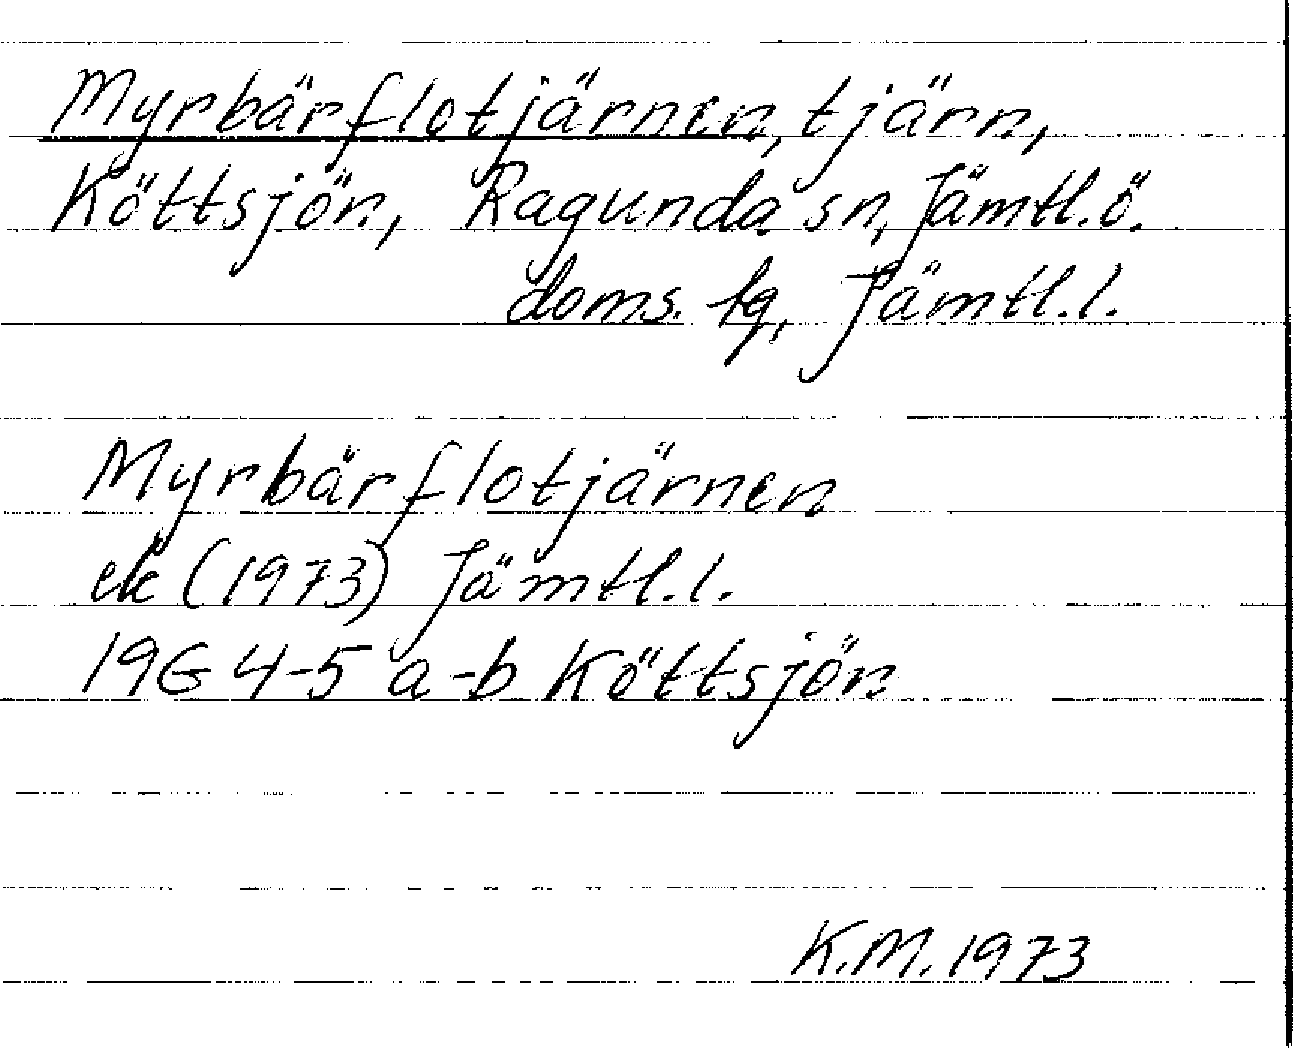 Myrbärflotjärnen, tjärn,
Köttsjön, Ragunda sn, Jämtl.ö.
doms. tg, Jämtl.l.
Myrbärflotjärnen
ek (1973) Jämtl.l.
19G 4-5 a-b Köttsjön
K.M. 1973